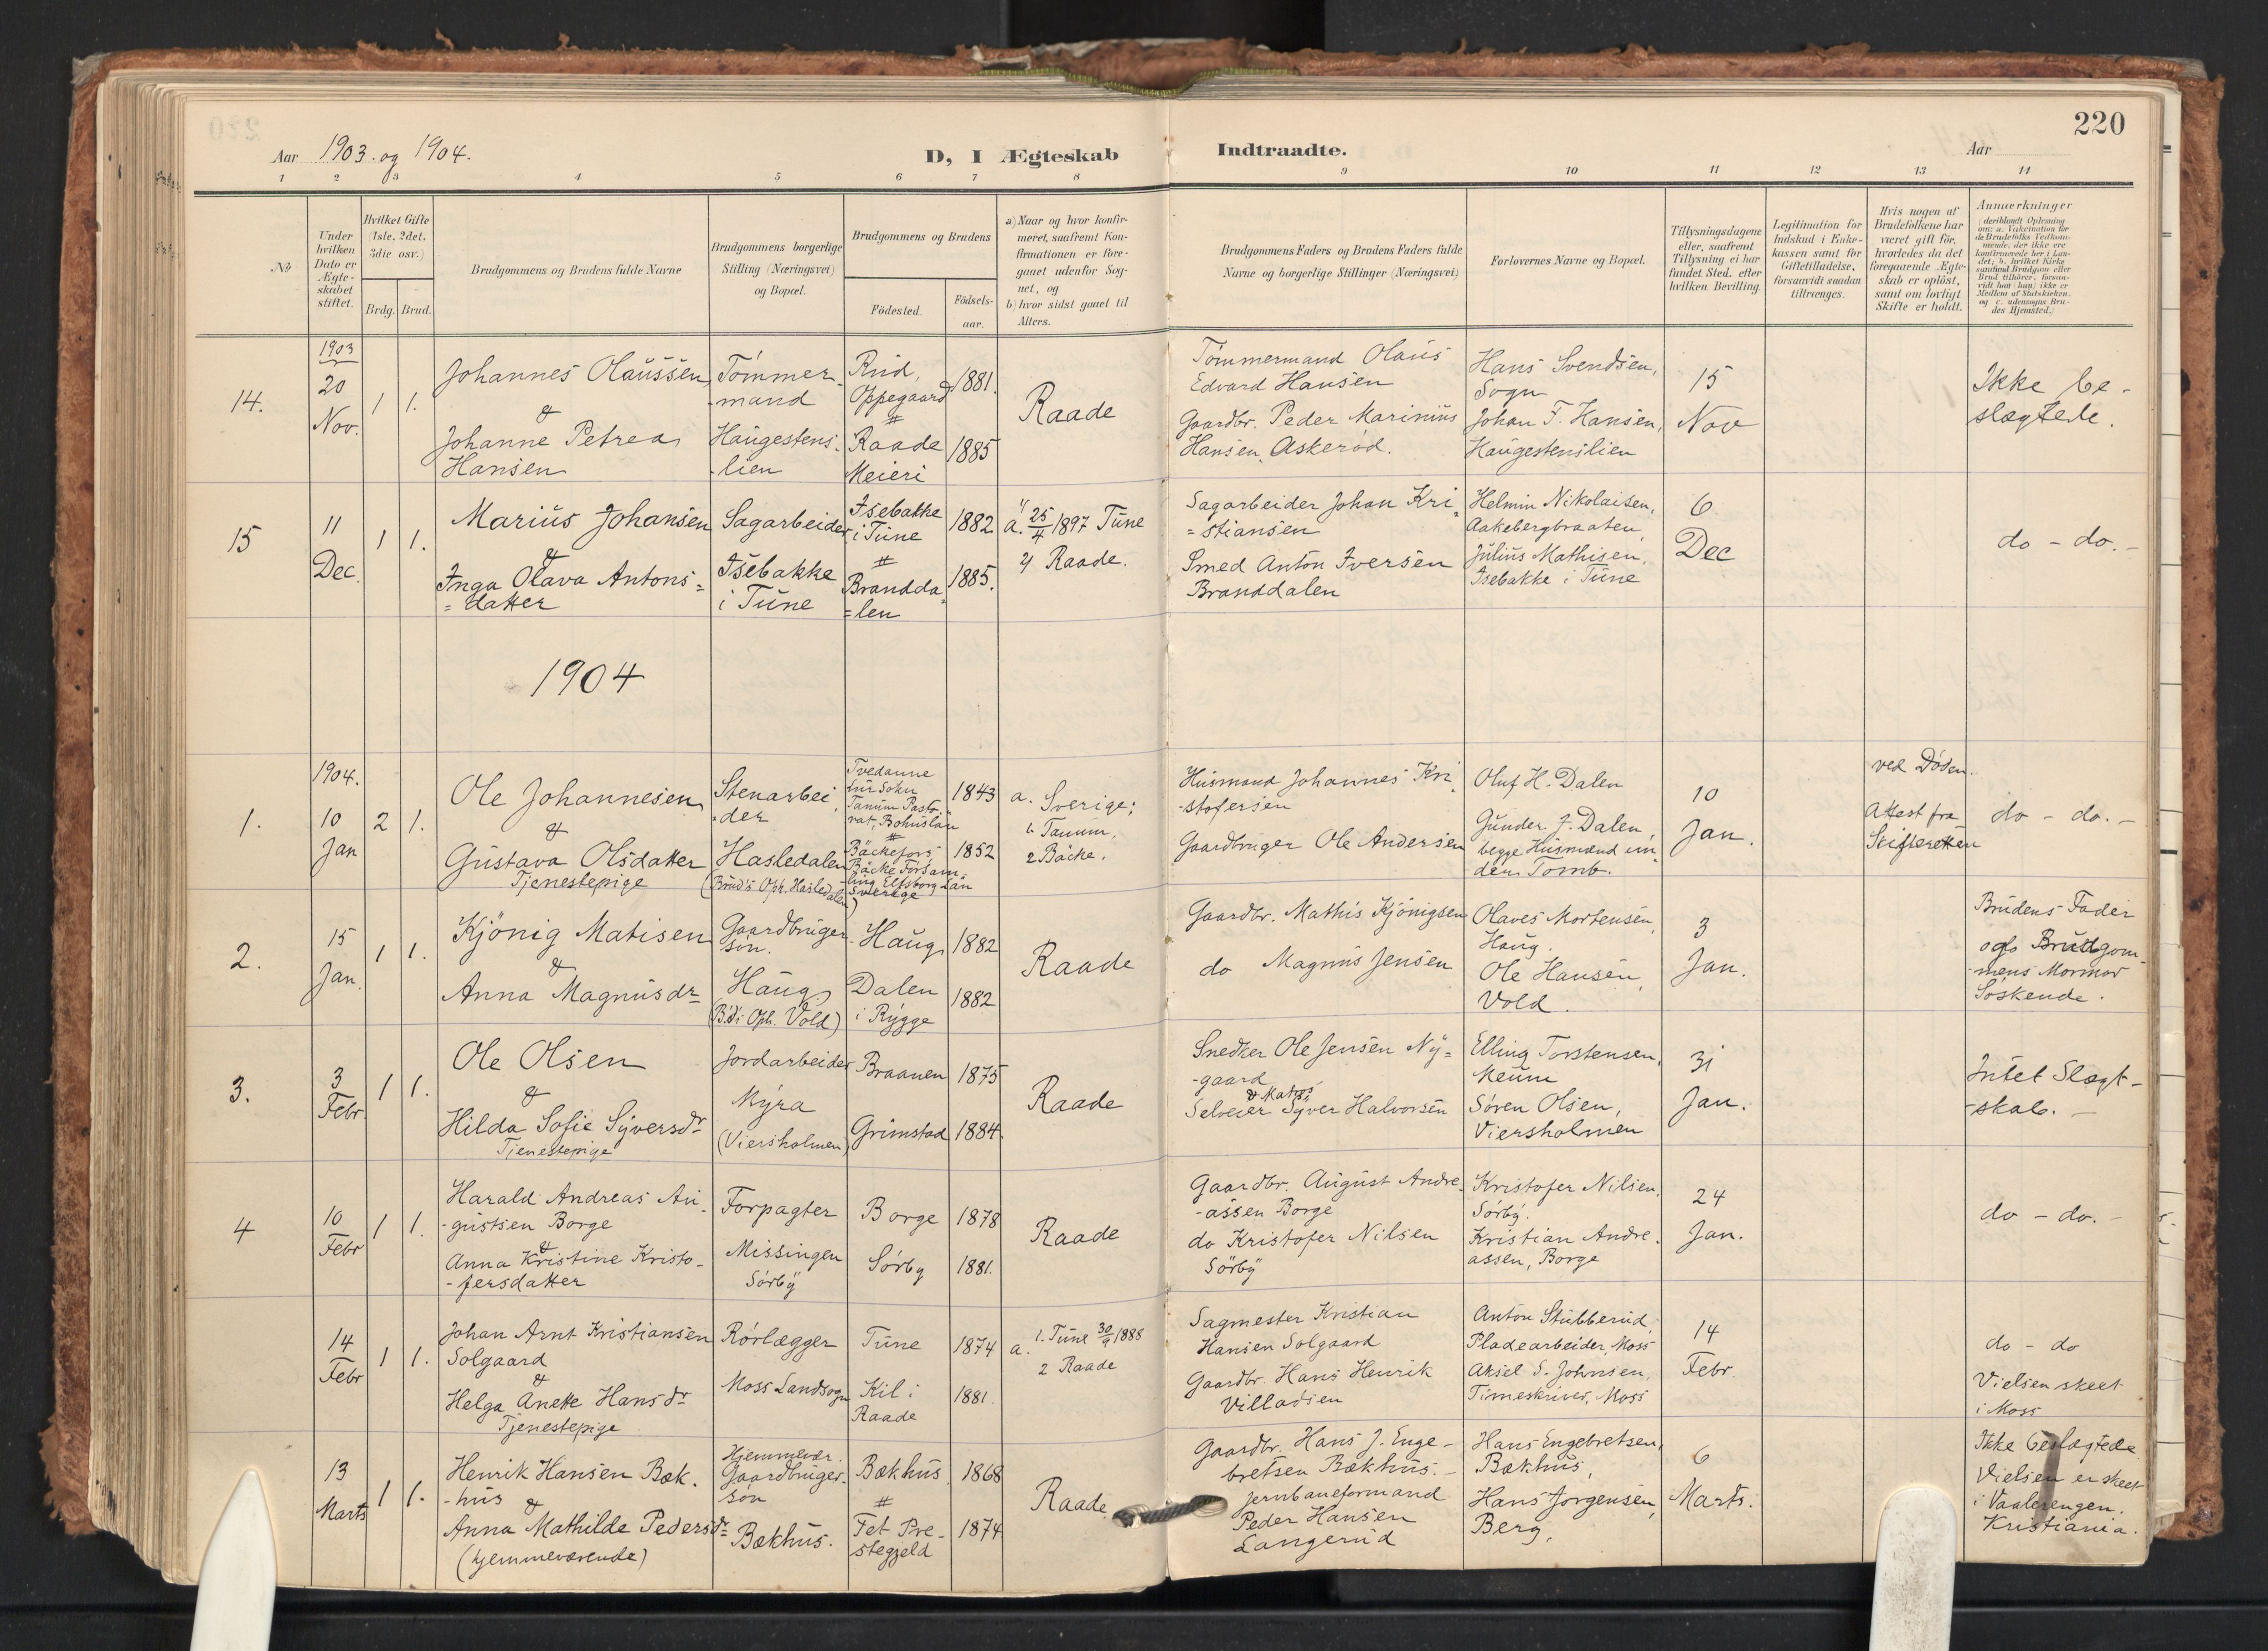 220
Aar 1903 og 1904.
D, I Ægteskab
Indtraadte.
Aar
1 2 3 4 5 6 7 8 9 10 11 12 13 14
No
Under hvilken Dato er Ægteskabet stiftet.
Hvilket Gifte (1ste, 2det, 3die osv.)
Brdg. Brud.
Brudgommens og Brudens fulde Navne
Brudgommens borgerlige Stilling (Næringsvei) og Bopæl.
Brudgommens og Brudens
Födested.
Födsels-aar.
a) Naar og hvor konfirmeret, saafremt Konfirmationen er foregaaet udenför Sognet, og
b) hvor sidst gaaet til Alters.
Brudgommens Faders og Brudens Faders fulde Navne og borgerlige Stillinger (Næringsvei)
Forlovernes Navne og Bopæl.
Tillysningsdagene eller, saafremt Tillysning ei har fundet Sted, efter hvilken Bevilling.
Legitimation for Indskud i Enkekassen samt for Giftetilladelse, forsaavidt saadan tiltrænges.
Hvis nogen af Brudefolkene har været gift för, hvorledes da det foregaaende Ægteskab er oplöst, samt om lovligt Skifte er holdt.
Anmerkninger
(deriblandt Oplysning om: a. Vakcination för de Brudefolks Vedkommende, der ikke ere konfirmerede her i Landet; b. hvilket Kirkesamfund Brudgom eller Brud tilhörer, forsaavidt han (hun) ikke er Medlem af Statskirken, og c. udensogns Brudes Hjemsted.)
14.
1903
20
Nov.
1 1.
Johannes Olaussen
&
Johanne Petrea
Hansen
Tömmer-
-mand
Haugestens-
-lien
Rud,
Oppegaard
#
Raade
Meieri
1881.
1885
Raade
Tömmermand Olaus
Edvard Hansen
Gaardbr. Peder Marinius
Hansen, Askeröd.
Hans Svendsen,
Sogn
Johan F. Hansen,
Haugestenslien
15
Nov
Ikke be-
slægtede.
15
11
Dec.
1 1.
Marius Johansen
&
Inga Olava Antons=
=datter
Sagarbeider
Isebakke
i Tune
Isebakke
i Tune
#
Brandda=
=len
1882
1885.
a. 25/4 1897 Tune
2) Raade.
Sagarbeider Johan Kri=
=stiansen
Smed Anton Iversen
Branddalen
Helmin Nikolaisen,
Aakebergbraaten,
Julius Mathisen,
Isebakke i Tune
6
Dec
do - do. -
1904
1.
1904.
10
Jan
2 1.
Ole Johannesen
&
Gustava Olsdatter
Tjenestepige
Stenarbei
=der
Hasledalen
(Brud's Oph. Hasledalen)
Tvedanne
Lur Sokn
Tanum Pasto
rat, Bohuslän
#
Bäckefors
Bäcke Forsam-
ling Elfsborg Län
Sverige
1843
1852
a. Sverige:
1. Tanum.
2 Bäcke.
Husmand Johannes Kri
-stofersen
Gaardbruger Ole Andersen
Oluf H. Dalen
Gunder J. Dalen,
begge Husmænd un
den Tomb.
10
Jan.
ved Döden.
Attest fra
Skifteretten
do - do. -
2.
15
Jan.
1 1.
Kjönig Matisen
&
Anna Magnusdr
Gaardbruger
sön.
Haug
(B.'s Oph. Vold)
Haug
Dalen
i Rygge
1882
1882
Raade
Gaardbr. Mathis Kjönigsen
do Magnus Jensen
Olaves Mortensen,
Haug.
Ole Hansen,
Vold.
3
Jan.
Brudens Fader
og Brudgom-
-mens Mormor
Söskende.
3.
3
Febr
1 1.
Ole Olsen
&
Hilda Sofie Syversdr
Tjenestepige
Jordarbeider
Myra
(Viersholmen)
Braanen
Grimstad
1875
1884.
Raade
Snedker Ole Jensen Ny=
-gaard
& Matros
Selveier Syver Halvorsen
Elling Torstensen,
Meum
Sören Olsen,
Viersholmen
31
Jan.
Intet Slægt-
-skab. -
4
10
Febr
1 1.
Harald Andreas Au-
-gustsen Borge
&
Anna Kristine Kristo-
-fersdatter
Forpagter
Missingen
Sörby
Borge
Sörby
1878
1881.
Raade
Gaardbr. August Andre-
-assen Borge
do Kristofer Nilsen
Sörby
Kristofer Nilsen,
Sörby.
Kristian Andre-
assen, Borge
24
Jan.
do - do. -
14
Febr
1 1.
Johan Arnt Kristiansen
Solgaard
&
Helga Anette Hansdr
Tjenestepige
Rörlægger
Moss Landsogn
Tune
Kil i
Raade
1874
1881.
a. 1. Tune 30/9 1888
2 Raade
Sagmester Kristian
Hansen Solgaard
Gaardbr. Hans Henrik
Villadsen
Anton Stubberud,
Pladearbeider, Moss
Aksel S. Johnsen,
Timeskriver, Moss
14
Febr.
do - do
Vielsen skeet
i Moss
13
Marts
1 1.
Henrik Hansen Bæk-
-hus
&
Anna Mathilde Pedersdr
(hjemmeværende)
Hjemmevær.
Gaardbruger-
sön
Bækhus.
Bækhus
#
Fet Pre-
stegjeld
1868
1874
Raade
Gaardbr. Hans J. Enge-
bretsen Bækhus. -
Jernbaneformand
Peder Hansen
Langerud
Hans Engebretsen,
Bækhus,
Hans Jörgensen,
Berg,
6
Marts.
Ikke beslægtede
Vielsen er skeet
i Vaalerengen,
Kristiania.